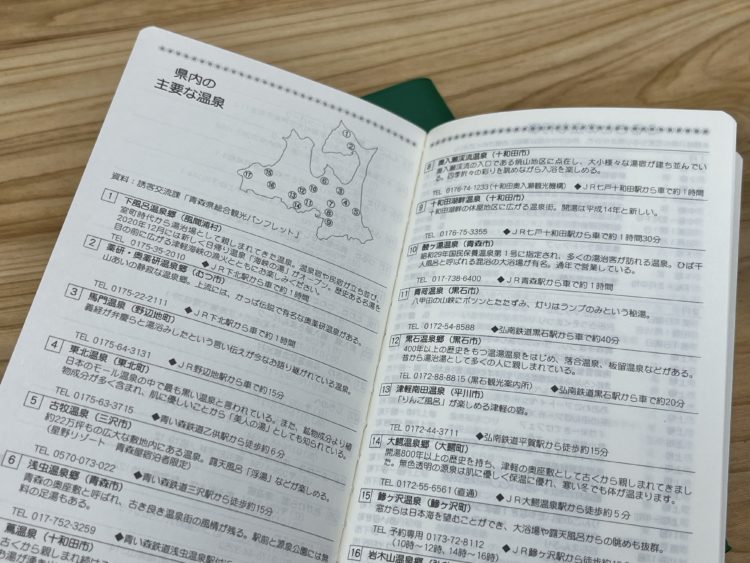 県内の
主要な温泉
① ② ③ ④ ⑤ ⑥ ⑦ ⑧ ⑨ ⑩ ⑪ ⑫ ⑬ ⑭ ⑮ ⑯ ⑰
資料：誘客交流課「青森県総合観光パンフレット」
1 下風呂温泉郷（風間浦村）
室町時代から湯治場として親しまれてきた温泉。温泉宿や民宿が立ち並び、
2020年12月には新しく日帰り温泉「海峡の湯」がオープン。歴史ある名湯を
目の前に広がる津軽海峡の漁火とともにお楽しみください。
TEL 0175-35-2010 ◆ＪＲ下北駅から車で約１時間
2 薬研・奥薬研温泉郷（むつ市）
山あいの静寂な温泉郷。上流には、かっぱ伝説で有名な奥薬研温泉がある。
TEL 0175-22-2111 ◆ＪＲ下北駅から車で約１時間
3 馬門温泉（野辺地町）
義経が弁慶らと湯浴みしたという言い伝えが今なお語り継がれている温泉。
TEL 0175-64-3131 ◆ＪＲ野辺地駅から車で約15分
4 東北温泉（東北町）
日本のモール温泉の中で最も黒い温泉と言われている。また、鉱物成分より植
物成分が多く含まれ、肌に優しいことから「美人の湯」としても知られている。
TEL 0175-63-3715 ◆青い森鉄道乙供駅から徒歩約６分
5 古牧温泉（三沢市）
約22万坪もの広大な敷地内にある温泉。露天風呂「浮湯」などが楽しめる。
（星野リゾート 青森屋宿泊者限定）
TEL 0570-073-022 ◆青い森鉄道三沢駅から徒歩約15分
6 浅虫温泉郷（青森市）
青森の奥座敷と呼ばれ、古き良き温泉街の風情が残る。駅前と源泉公園には無
料の足湯もある。
TEL 017-752-3259 ◆青い森鉄道浅虫温泉駅
蔦温泉（十和田市）
古くから親しまれ続け
8 奥入瀬渓流温泉（十和田市）
奥入瀬渓流の入口である焼山地区に点在し、大小様々な湯宿が建ち並んでい
る。四季折々の彩りを眺めながら入浴を楽しめる。
TEL 0176-74-1233（十和田奥入瀬観光機構） ◆ＪＲ七戸十和田駅から車で約１時間
9 十和田湖畔温泉（十和田市）
十和田湖畔の休屋地区に広がる温泉街。開湯は平成14年と新しい。
TEL 0176-75-3355 ◆ＪＲ七戸十和田駅から車で約１時間30分
10 酸ヶ湯温泉（青森市）
昭和29年国民保養温泉第１号に指定され、多くの湯治客が訪れる温泉。ひば千
人風呂と呼ばれる混浴の大浴場が有名。通年で営業している。
TEL 017-738-6400 ◆ＪＲ青森駅から車で約１時間
11 青荷温泉（黒石市）
八甲田の山峡にポツンとたたずみ、灯りはランプのみという秘湯。
TEL 0172-54-8588 ◆弘南鉄道黒石駅から車で約40分
12 黒石温泉郷（黒石市）
400年以上の歴史をもつ温湯温泉をはじめ、落合温泉、板留温泉などがある。
昔から湯治湯として多くの人に親しまれている。
TEL 0172-88-8815（黒石観光案内所） ◆弘南鉄道黒石駅から車で約20分
13 津軽南田温泉（平川市）
「りんご風呂」が楽しめる津軽の宿。
TEL 0172-44-3711 ◆弘南鉄道平賀駅から徒歩約15分
14 大鰐温泉郷（大鰐町）
開湯800年以上の歴史を持ち、津軽の奥座敷として古くから親しまれてきまし
た。無色透明の源泉は肌に優しく保温に優れ、寒い冬でも体が温まります。
TEL 0172-55-6561（直通） ◆ＪＲ大鰐温泉駅から徒歩約５分
15 鰺ヶ沢温泉（鰺ヶ沢町）
窓からは日本海を望むことができ、大浴場や露天風呂からの眺めも抜群。
TEL 予約専用 0173-72-8112 ◆ＪＲ鰺ヶ沢駅から
（10時～12時、14時～16時）
16 岩木山温泉郷